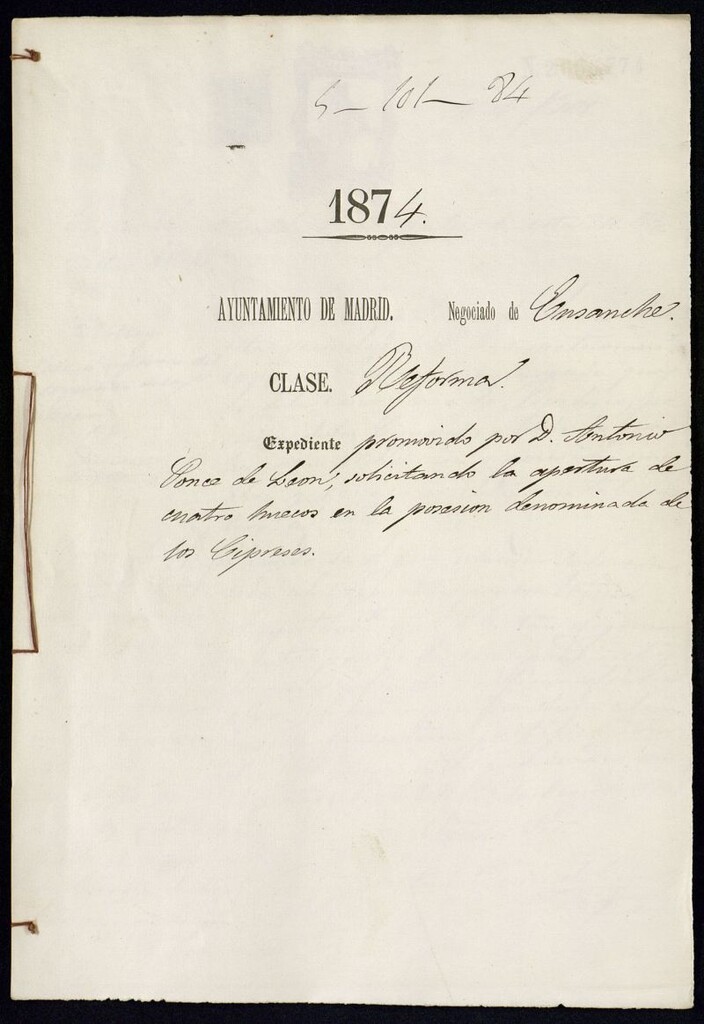 5 - 101 - 84
1874.
AYUNTAMIENTO DE MADRID. Negociado de Ensanche.
CLASE. Reforma.
Expediente promovido por D. Antonio
Ponce de Leon, solicitando la apertura de
cuatro huecos en la posesion denominada de
los Cipreses.